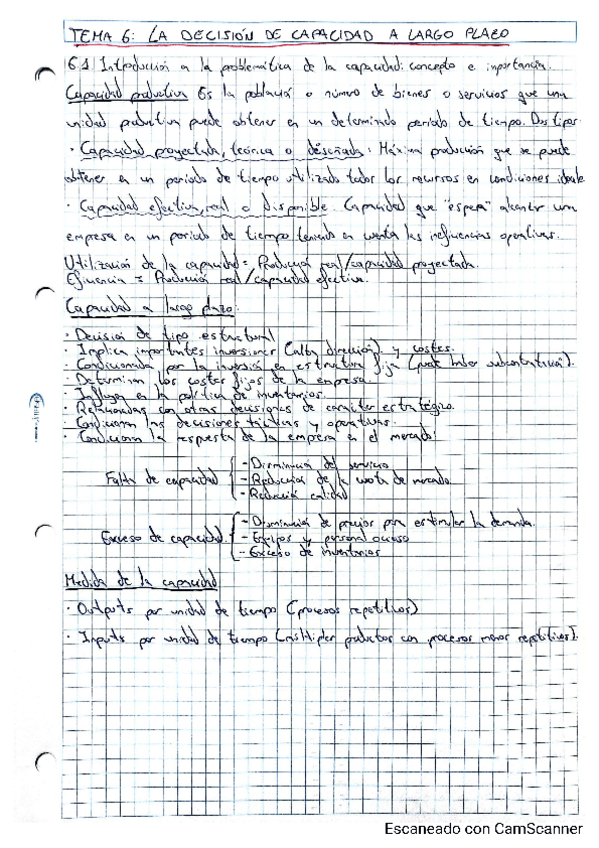 TEMA 6: LA DECISIÓN DE CAPACIDAD A LARGO PLAZO
6.1 Introducción a la problemática de la capacidad: concepto e importancia.
Capacidad productiva Es la población o número de bienes o servicios que una
unidad productiva puede obtener en un determinado periodo de tiempo. Dos tipos
· Capacidad proyectada, teórica o diseñada: Máxima producción que se puede
obtener en un periodo de tiempo utilizado todos los recursos en condiciones ideale
· Capacidad efectiva, real o disponible. Capacidad que "espera" alcanzar una
empresa en un periodo de tiempo teniendo en cuenta las influencias operativas.
Utilización de la capacidad = Producción real/capacidad proyectada.
Eficiencia = Producción real/capacidad efectiva.
Capacidad a largo plazo:
· Decisión de tipo estructural
· Implica importantes inversiones (alta dirección) y costes.
· Condicionada por la inversión en estructura fija (puede haber subcontratación).
· Determinan los costes fijos de la empresa.
· Influye en la política de inventarios.
· Relacionadas con otras decisiones de carácter estratégico.
· Condicionan las decisiones tácticas y operativas.
· Condicionan la respuesta de la empresa en el mercado:
Falta de capacidad
- Disminución del servicio
- Reducción de la cuota de mercado
- Reducción calidad
Exceso de capacidad
- Disminución de precios para estimular la demanda.
- Equipos y personal ocioso
- Exceso de inventarios
Medida de la capacidad
· Outputs por unidad de tiempo (procesos repetitivos)
· Inputs por unidad de tiempo (múltiples productos con procesos menos repetitivos).
Escaneado con CamScanner